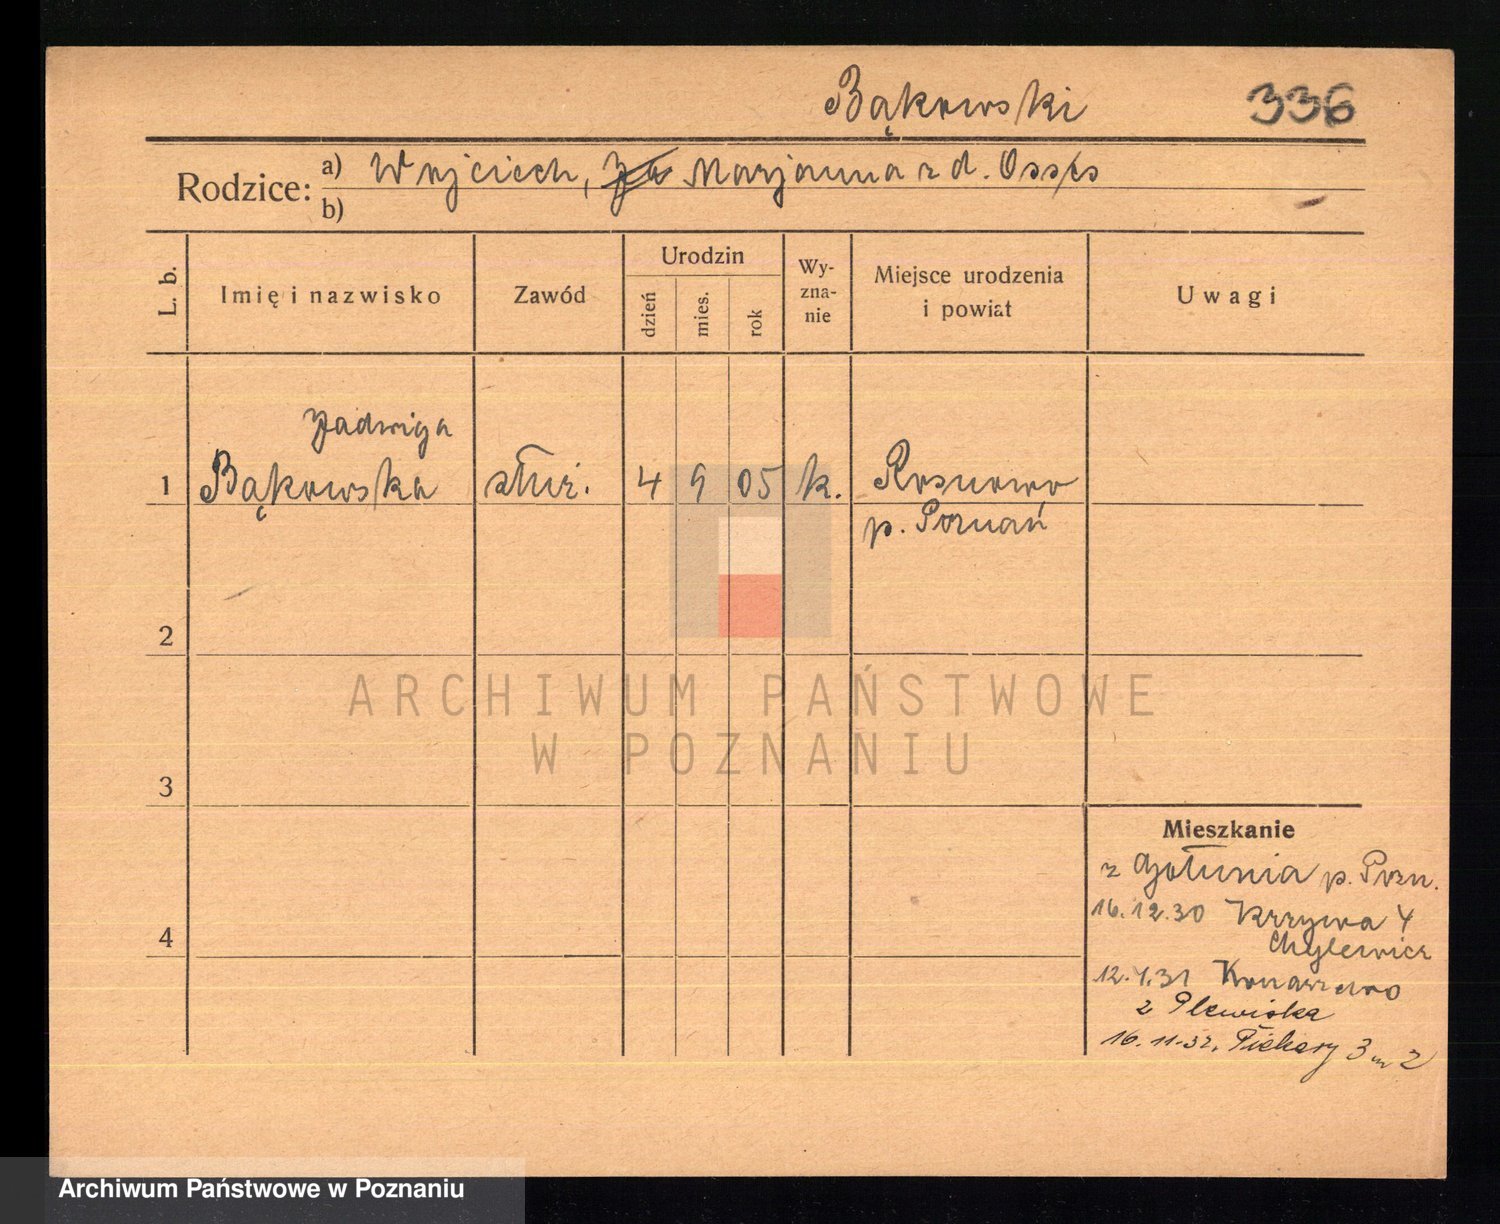 Bąkowski 336
Rodzice: a) Wojciech, Marjanna z d.
b)
L. b. Imię i nazwisko Zawód Urodzin dzień mies. rok Wy-zna-nie Miejsce urodzenia i powiat Uwagi
Jadwiga
1 Bąkowska służ. 4 9 05 k. Rosnowo
p. Poznań
2
ARCHIWUM PAŃSTWOWE
W POZNANIU
3
Mieszkanie
z p. Pozn.
16.12.30 Krzywa 4
4
Chylewicz
12.4.31 Konarzewo
z Plewiska
16.11.32. Piekary 3 m 2
Archiwum Państwowe w Poznaniu